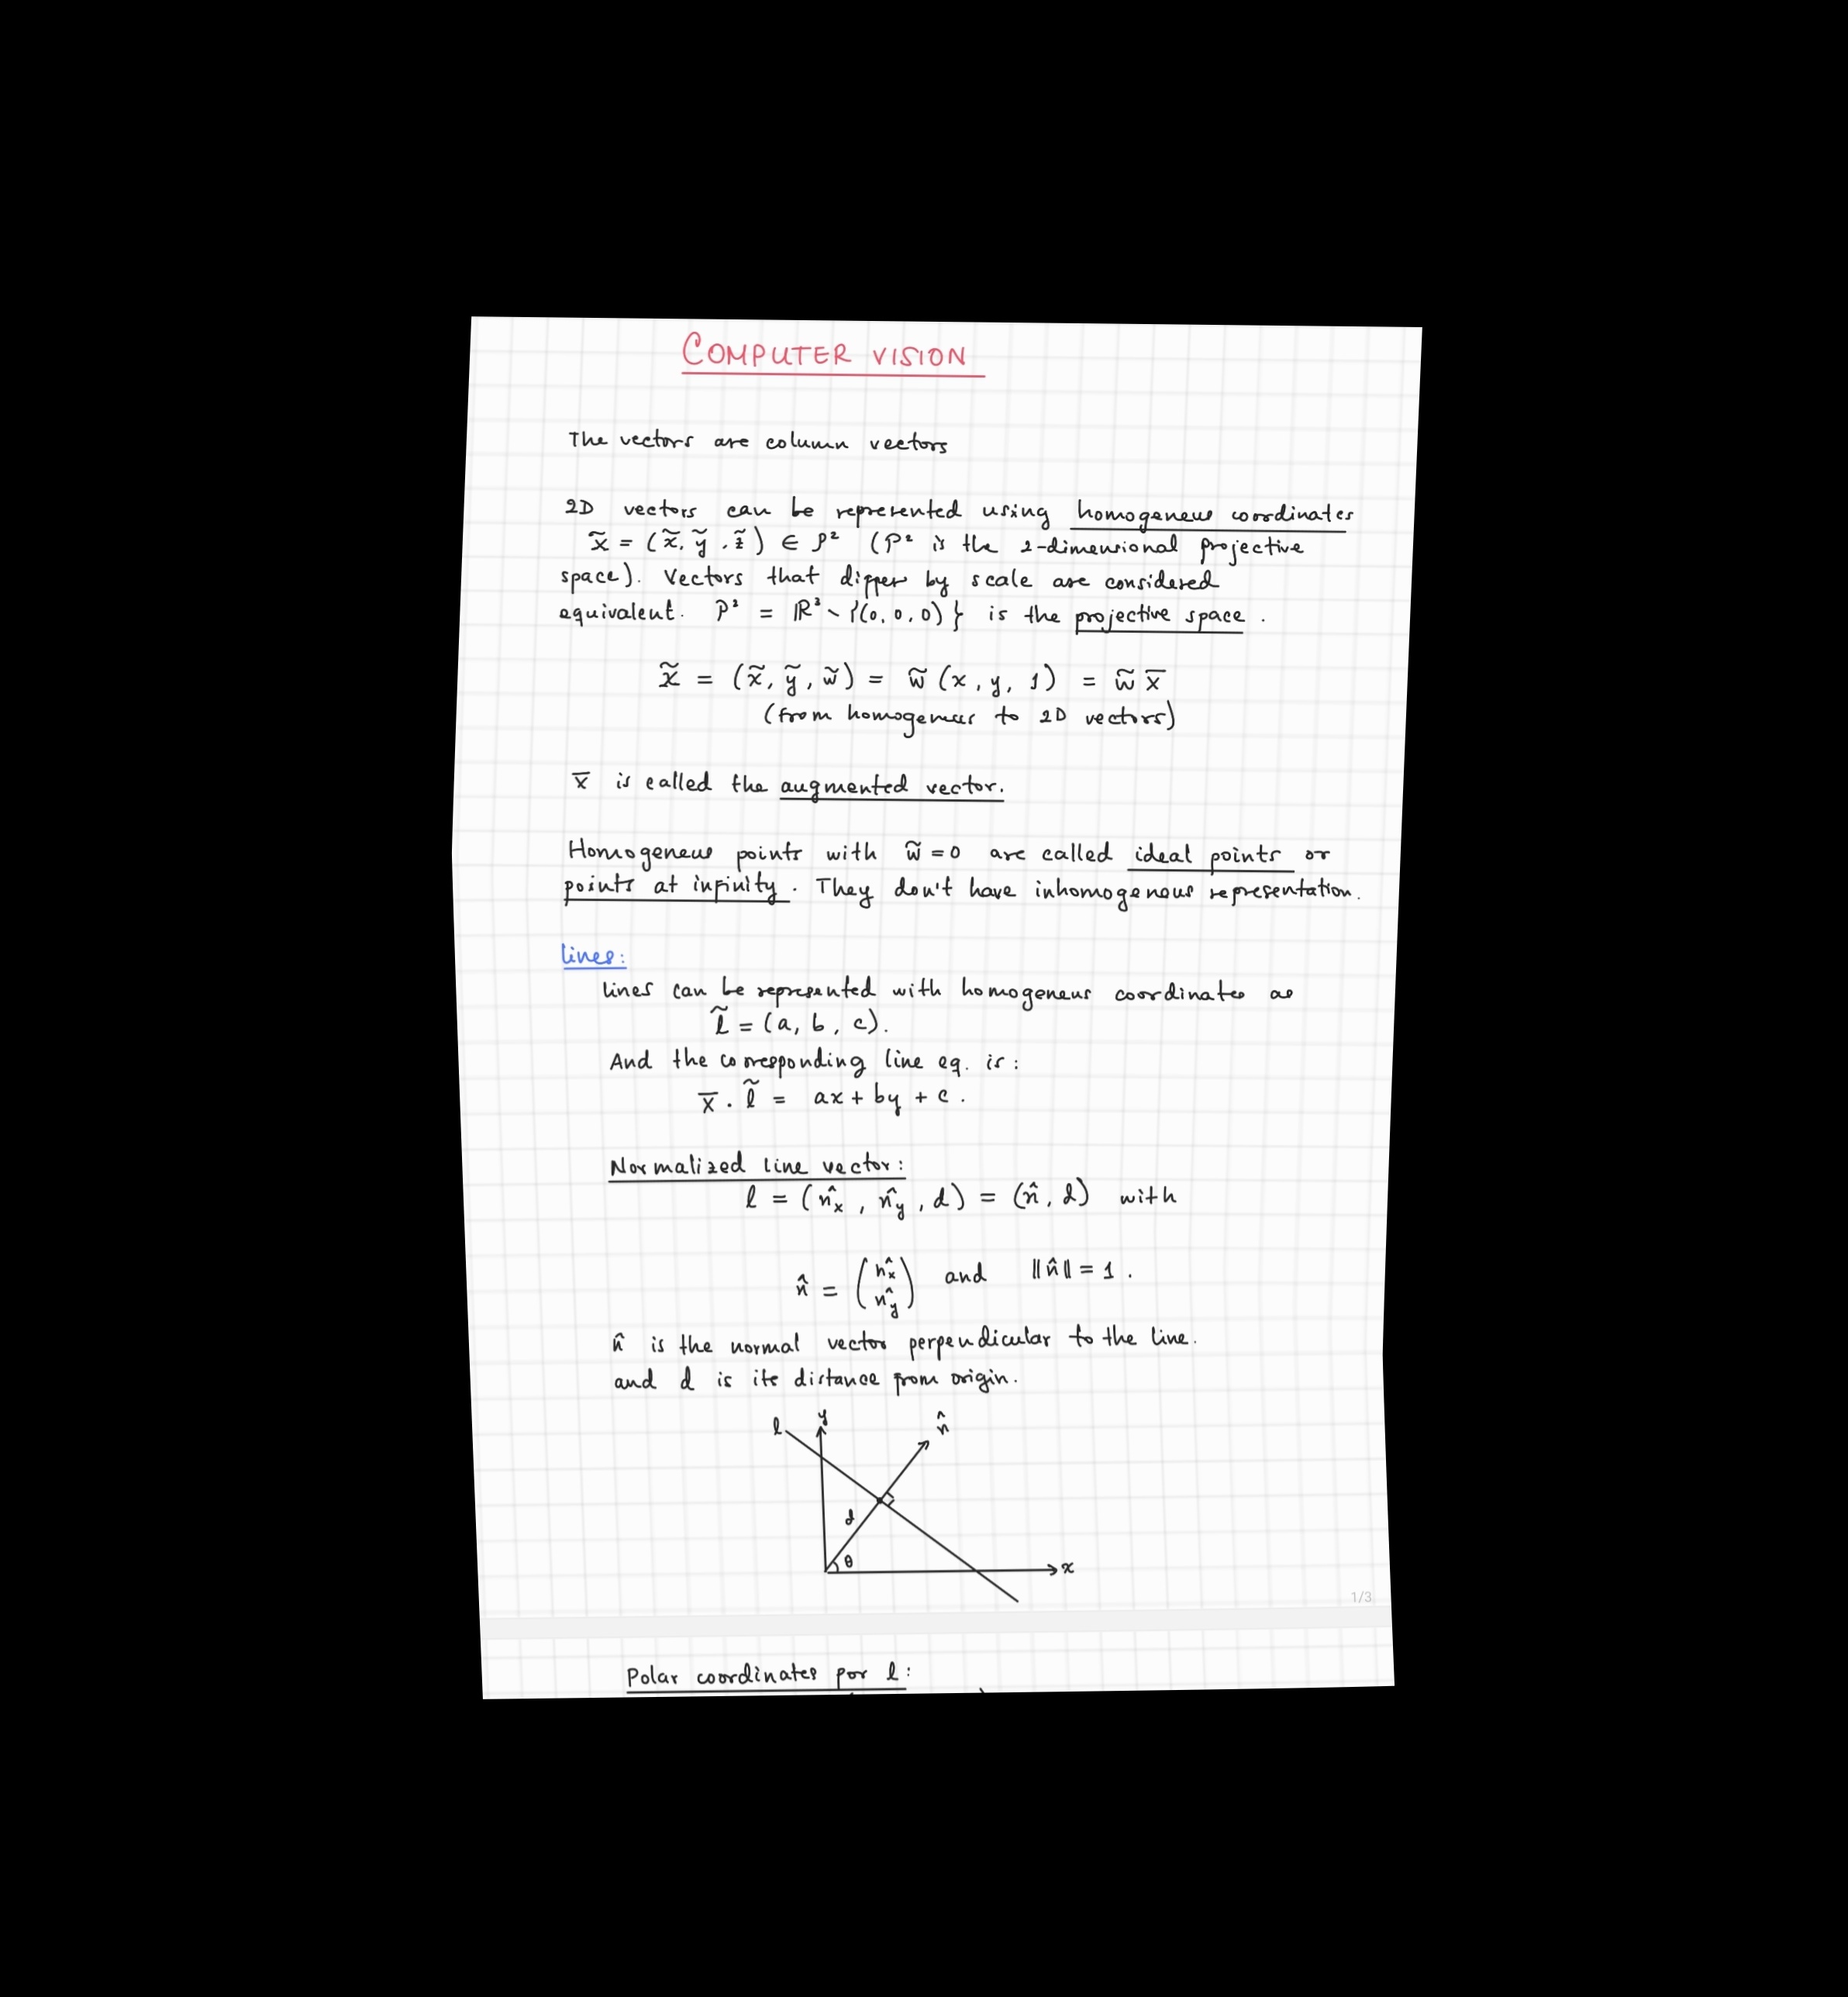 COMPUTER VISION
The vectors are column vectors
2D vectors can be represented using homogeneus coordinates
x̃ = (x̃, ỹ, z̃) ∈ P² (P² is the 2-dimensional projective
space). Vectors that differ by scale are considered
equivalent. P² = ℝ³ \ {(0, 0, 0)} is the projective space.
x̃ = (x̃, ỹ, w̃) = w̃ (x, y, 1) = w̃ x̄
(from homogeneus to 2D vectors)
x̄ is called the augmented vector.
Homogeneus points with w̃ = 0 are called ideal points or
points at infinity. They don't have inhomogenous representation.
lines:
lines can be represented with homogeneus coordinates as
l̃ = (a, b, c).
And the corresponding line eq. is:
x̄ . l̃ = ax + by + c.
Normalized line vector:
l = (n̂x, n̂y, d) = (n̂, d) with
n̂ = (n̂x n̂y) and ‖n̂‖ = 1.
n̂ is the normal vector perpendicular to the line.
and d is its distance from origin.
l y n̂
d
θ x
1/3
Polar coordinates for l: